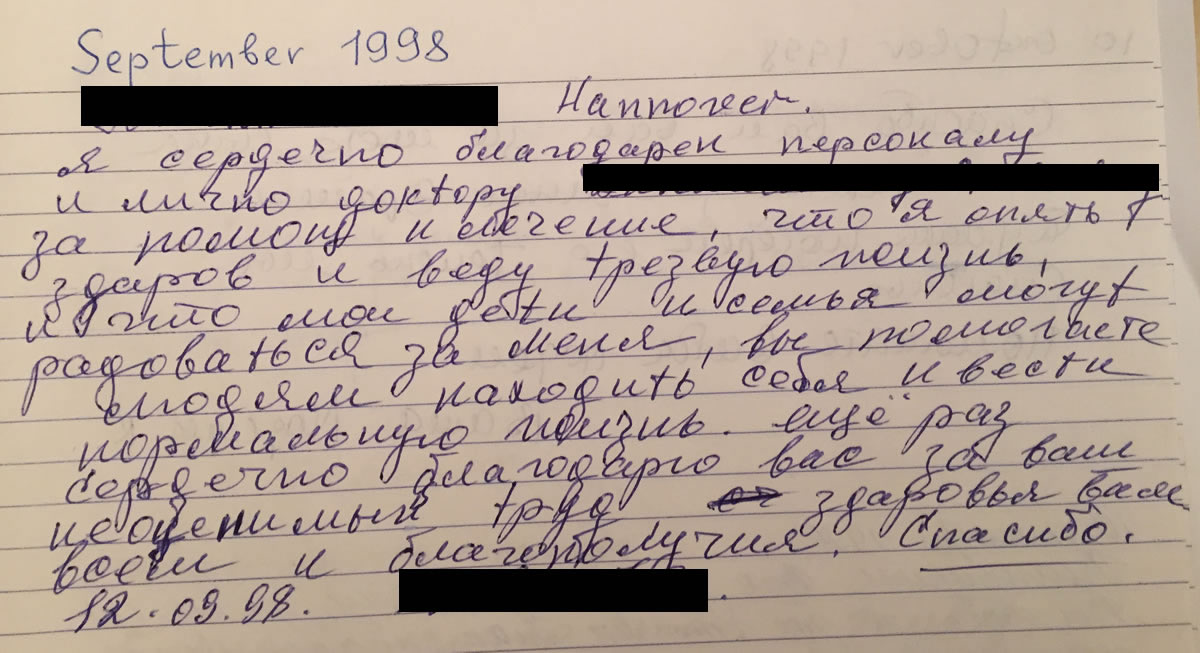 September 1998
Hannover.
я сердечно благодарен персоналу
и лично доктору
за помощ и лечение, что я опять
здаров и веду трезвую жизнь,
и что мои дети и семья могут
радоваться за меня, вы помогаете
людям находить себя и вести
нормальную жизнь. ещё раз
сердечно благодарю вас за ваш
неоценимый труд здаровья вам
всем и благополучия. Спасибо.
12.09.98.